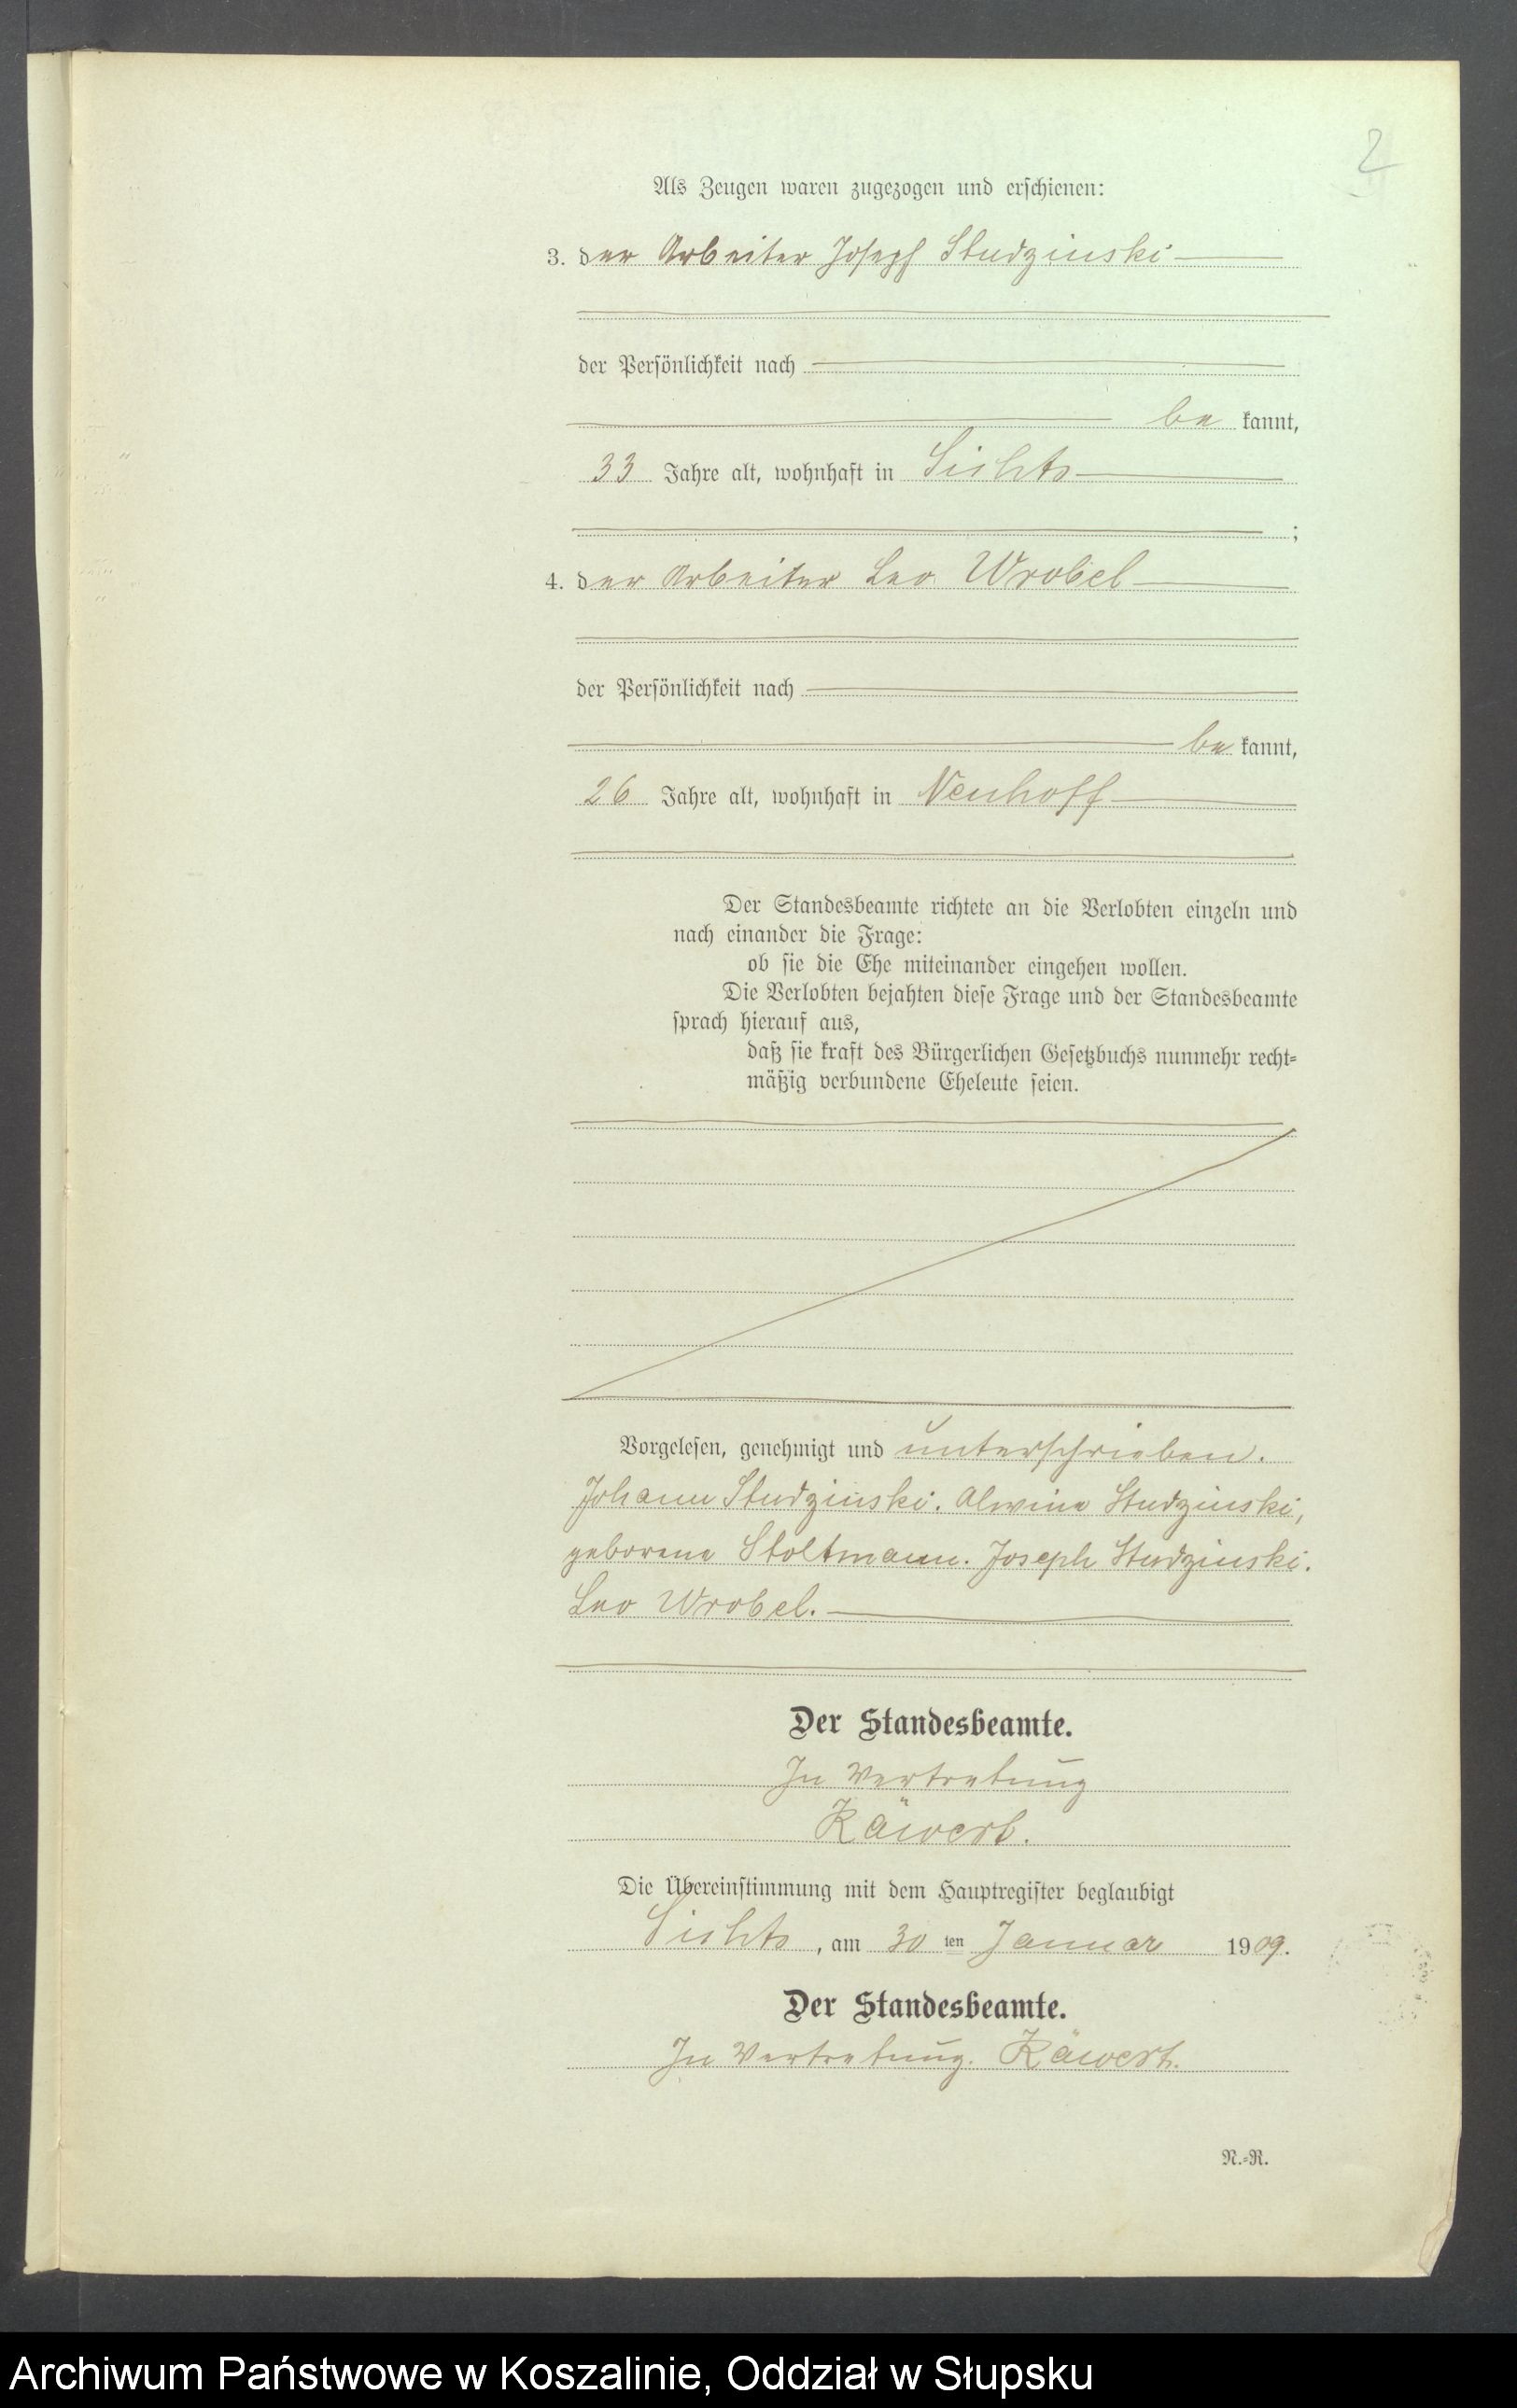 2
Als Zeugen waren zugezogen und erschienen:
3. der Arbeiter Joseph Studzinski
der Persönlichkeit nach
be kannt,
33 Jahre alt, wohnhaft in Sichts
;
4. der Arbeiter Leo Wrobel
der Persönlichkeit nach
be kannt,
26 Jahre alt, wohnhaft in Neuhoff
Der Standesbeamte richtete an die Verlobten einzeln und
nach einander die Frage:
ob sie die Ehe miteinander eingehen wollen.
Die Verlobten bejahten diese Frage und der Standesbeamte
sprach hierauf aus,
daß sie kraft des Bürgerlichen Gesetzbuchs nunmehr recht-
mäßig verbundene Eheleute seien.
Vorgelesen, genehmigt und unterschrieben.
Johann Studzinski. Alwine Studzinski,
geborene Stoltmann. Joseph Studzinski.
Leo Wrobel.
Der Standesbeamte.
In Vertretung
Käwert.
Die Übereinstimmung mit dem Hauptregister beglaubigt
Sichts, am 30 ten Januar 1909.
Der Standesbeamte.
In Vertretung. Käwert.
N.-R.
Archiwum Państwowe w Koszalinie, Oddział w Słupsku